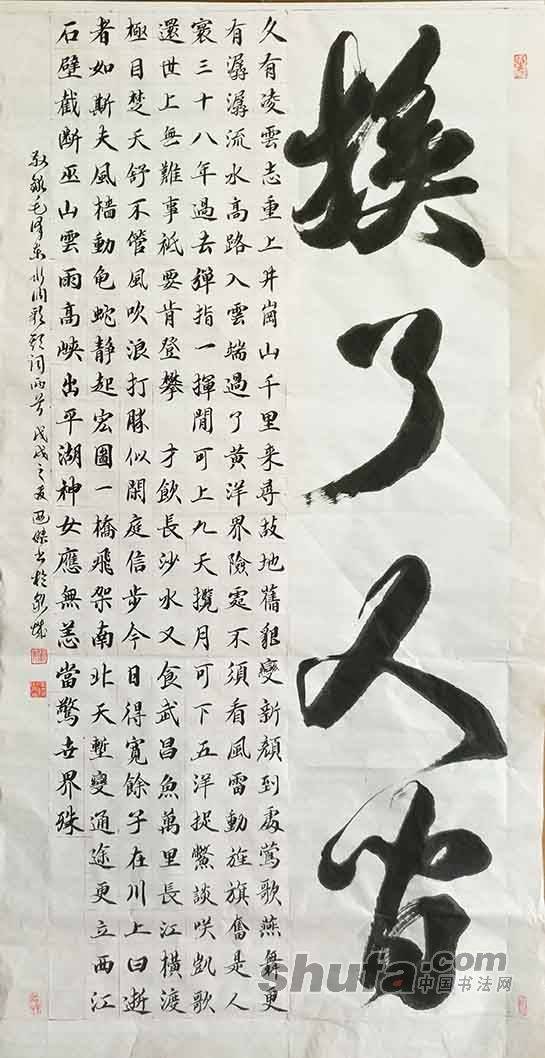 換了人間
久有凌雲志重上井崗山千里來尋故地舊貌變新顏到處鶯歌燕舞更
有潺潺流水高路入雲端過了黃洋界險處不須看風雷動旌旗奮是人
寰三十八年過去彈指一揮間可上九天攬月可下五洋捉鱉談笑凱歌
還世上無難事祇要肯登攀 才飲長沙水又食武昌魚萬里長江橫渡
極目楚天舒不管風吹浪打勝似閑庭信步今日得寬餘子在川上曰逝
者如斯夫風檣動龜蛇靜起宏圖一橋飛架南北天塹變通途更立西江
石壁截斷巫山雲雨高峽出平湖神女應無恙當驚世界殊
敬錄毛澤東水調歌頭詞両首 戊戌之夏 書於泉城
shufa.com
中国书法网